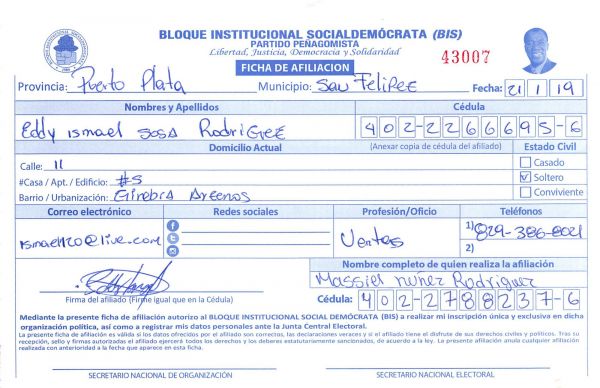 BLOQUE INSTITUCIONAL SOCIALDEMÓCRATA (BIS)
PARTIDO PEÑAGOMISTA
Libertad, Justicia, Democracia y Solidaridad
43007
FICHA DE AFILIACION
Provincia: Puerto Plata Municipio: San Felipee Fecha: 21/1/19
Nombres y Apellidos Cédula
Eddy ismael sosa Rodriguee 402-2266695-6
Domicilio Actual (Anexar copia de cédula del afiliado) Estado Civil
Calle: 11 Casado
#Casa / Apt. / Edificio: #5 Soltero
Barrio / Urbanización: Ginebra Areenos Conviviente
Correo electrónico Redes sociales Profesión/Oficio Teléfonos
ismael120@live.com Ventas 1) 829-386-8021
2)
Nombre completo de quien realiza la afiliación
Massiel nuñez Rodriguez
Firma del afiliado (Firme igual que en la Cédula) Cédula: 402-2788237-6
Mediante la presente ficha de afiliación autorizo al BLOQUE INSTITUCIONAL SOCIAL DEMÓCRATA (BIS) a realizar mi inscripción única y exclusiva en dicha
organización política, así como a registrar mis datos personales ante la Junta Central Electoral.
La presente ficha de afiliación es válida si los datos ofrecidos por el afiliado son correctos, las declaraciones veraces y si el afiliado tiene el disfrute de sus derechos civiles y politicos. Tras su
recepción, sello y firmas autorizadas el afiliado ejercerá todos los derechos y los deberes estatutariamente sancionados, de acuerdo a la ley. La presente afiliación anula cualquier afiliación
realizada con anterioridad a la fecha que aparece en esta ficha.
SECRETARIO NACIONAL DE ORGANIZACIÓN SECRETARIO NACIONAL ELECTORAL